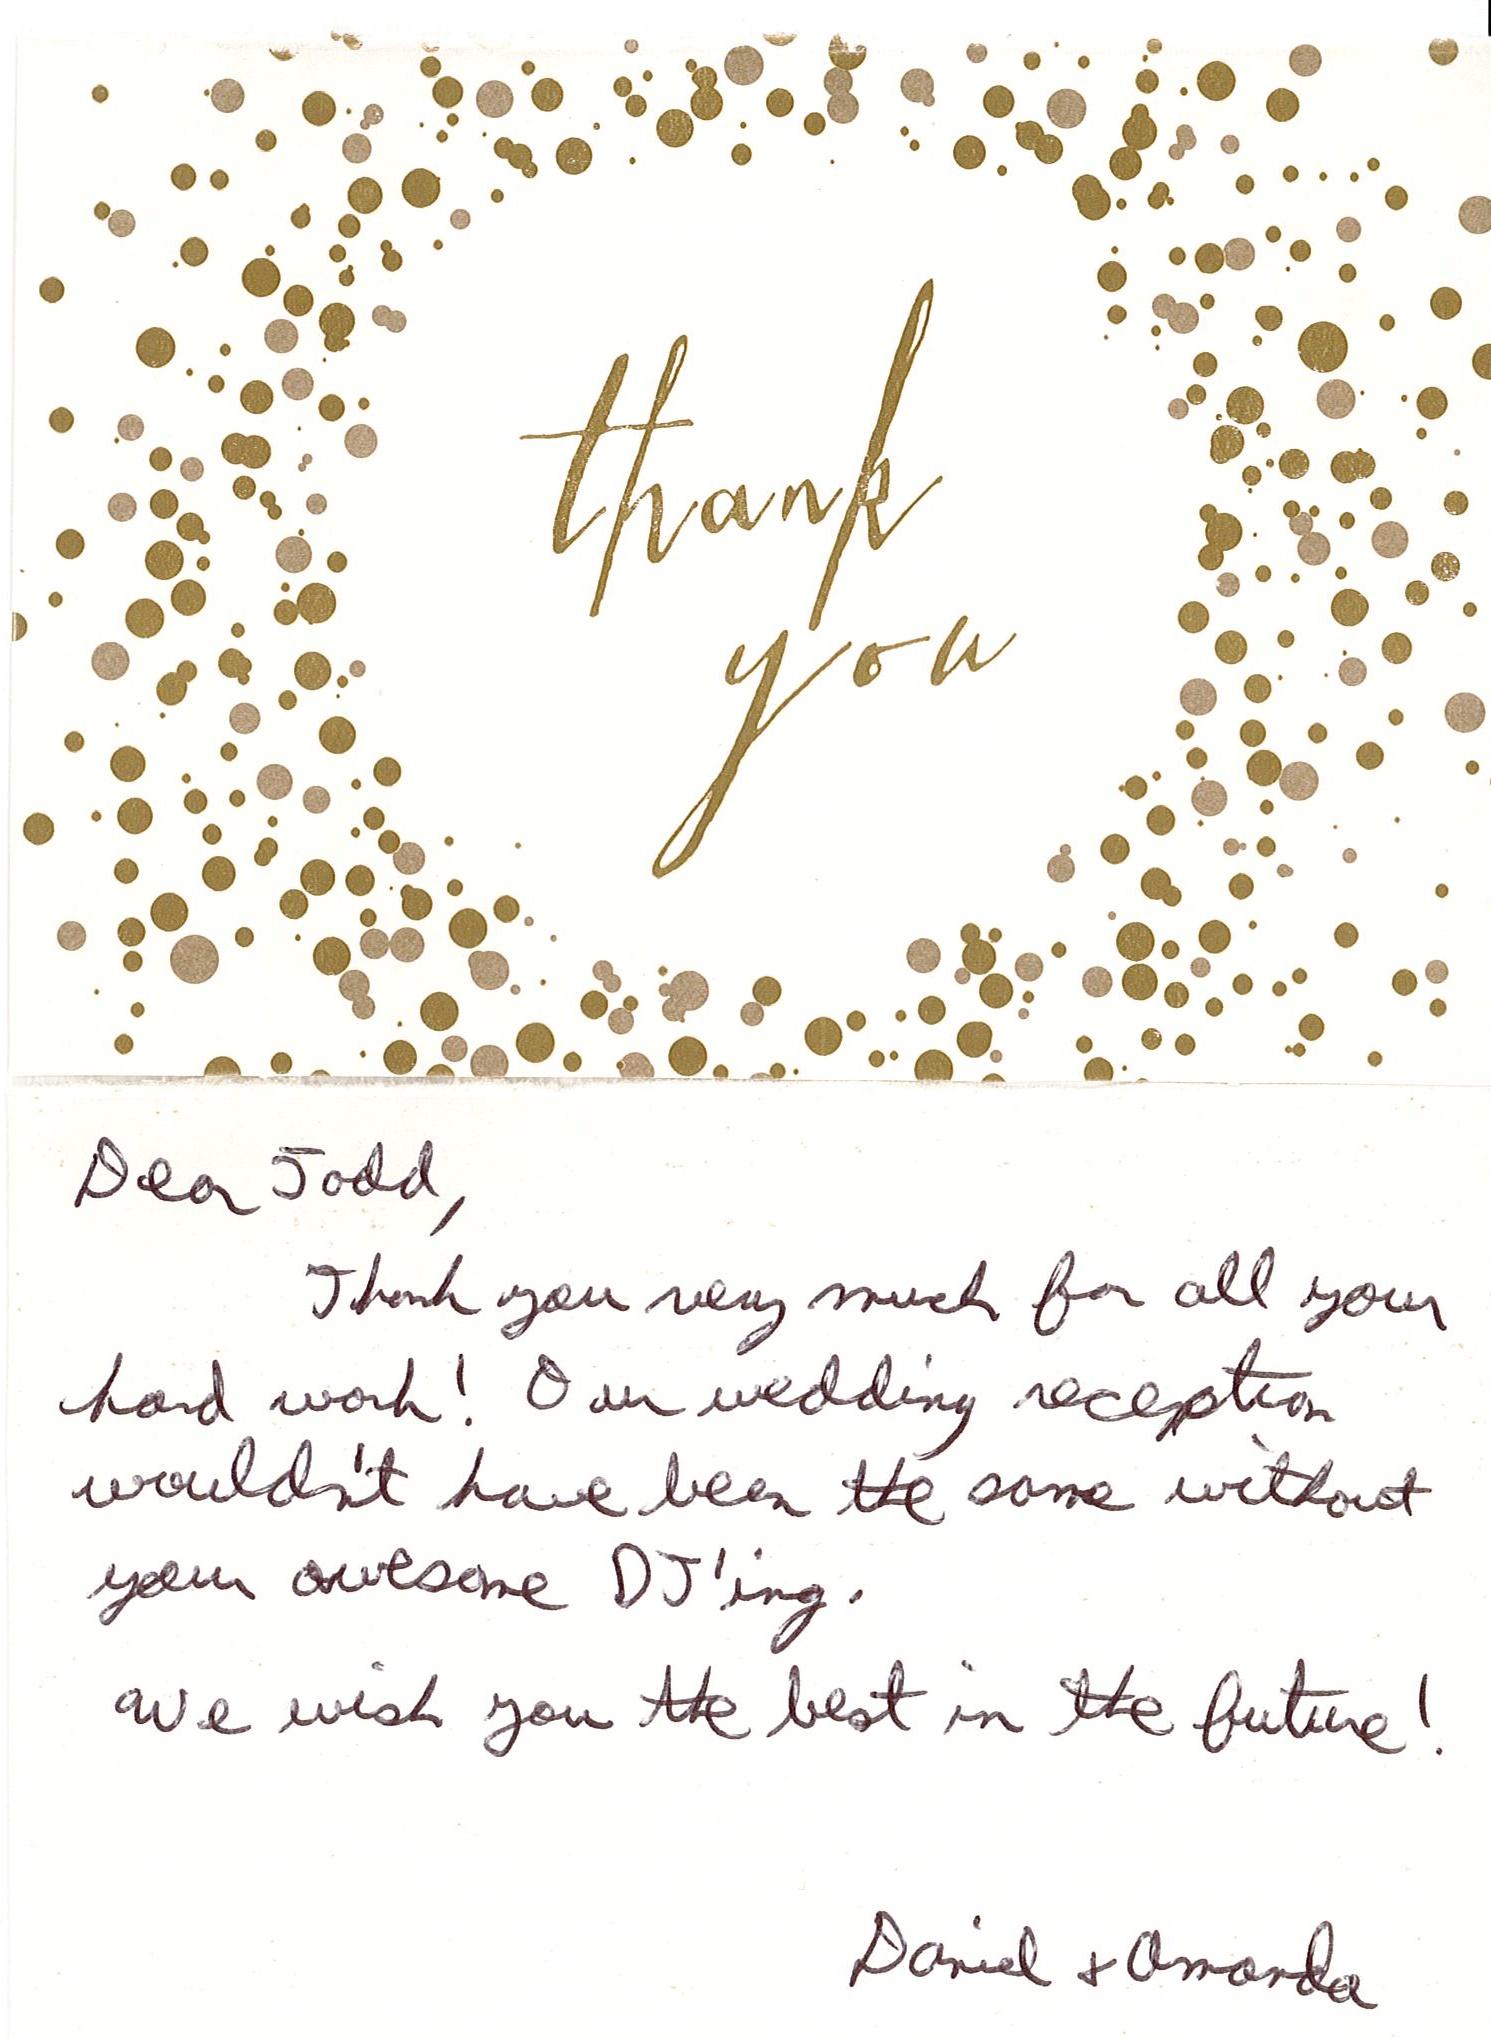 thank
you
Dear Todd,
Thank you very much for all your
hard work! Our wedding reception
wouldn't have been the same without
your awesome DJ'ing.
We wish you the best in the future!
Daniel & Amanda